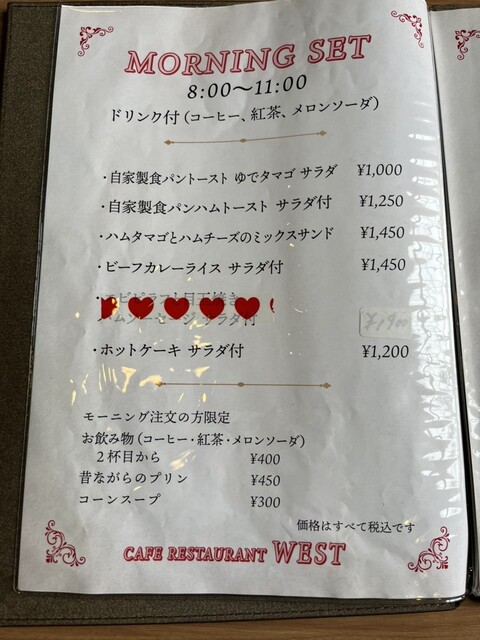 MORNING SET
8:00〜11:00
ドリンク付（コーヒー、紅茶、メロンソーダ）
・自家製食パントースト ゆでタマゴ サラダ ¥1,000
・自家製食パンハムトースト サラダ付 ¥1,250
・ハムタマゴとハムチーズのミックスサンド ¥1,450
・ビーフカレーライス サラダ付 ¥1,450
サラダ付
・ホットケーキ サラダ付 ¥1,200
モーニング注文の方限定
お飲み物（コーヒー・紅茶・メロンソーダ）
２杯目から ¥400
昔ながらのプリン ¥450
コーンスープ ¥300
価格はすべて税込です
CAFE RESTAURANT WEST